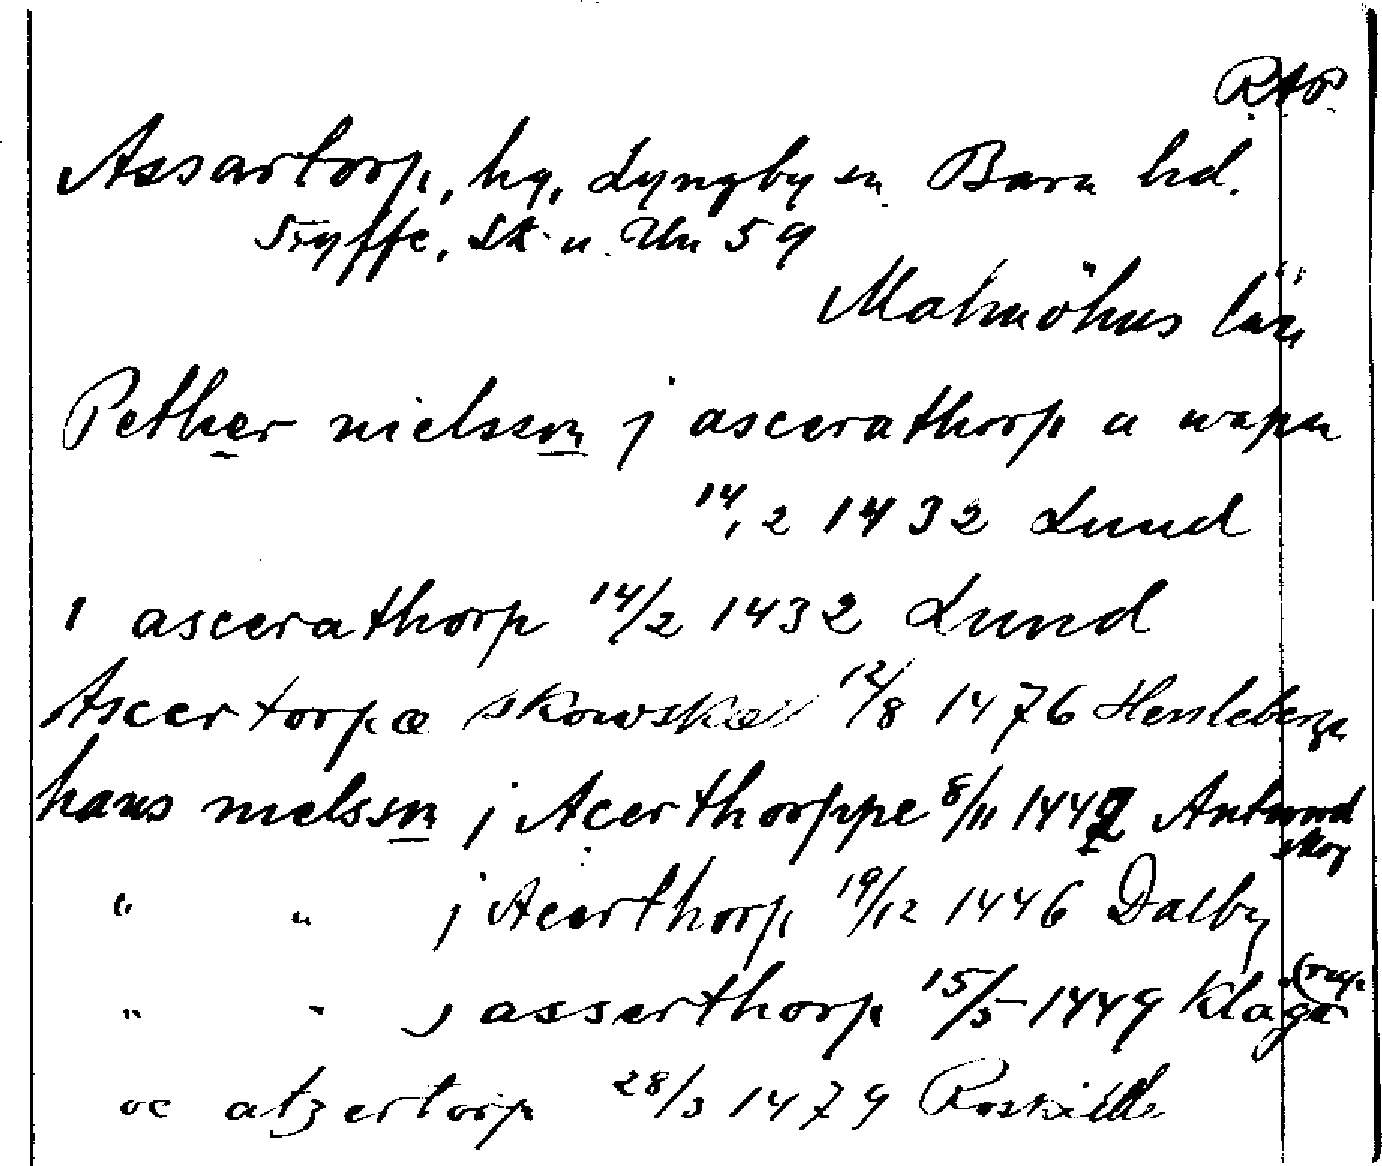 RAP.
Assartorp, hg, Lyngby sn. Bara hd.
Tryffe, Sk. u. Un 59
Malmöhus län
Pether nielssøn j ascerathorp a wapn
14/2 1432 Lund
i ascerathorp 14/2 1432 Lund
Ascertorpæ skowskæl 12/8 1476 Hersleberga
hans nielssøn j Acerthorppe 8/11 1442 Antword
skog
" " j Acerthorp 19/12 1446 Dalby
" " j asserthorp 15/5 1449 Klaga
oc atzertorp 28/3 1479 Roskilde